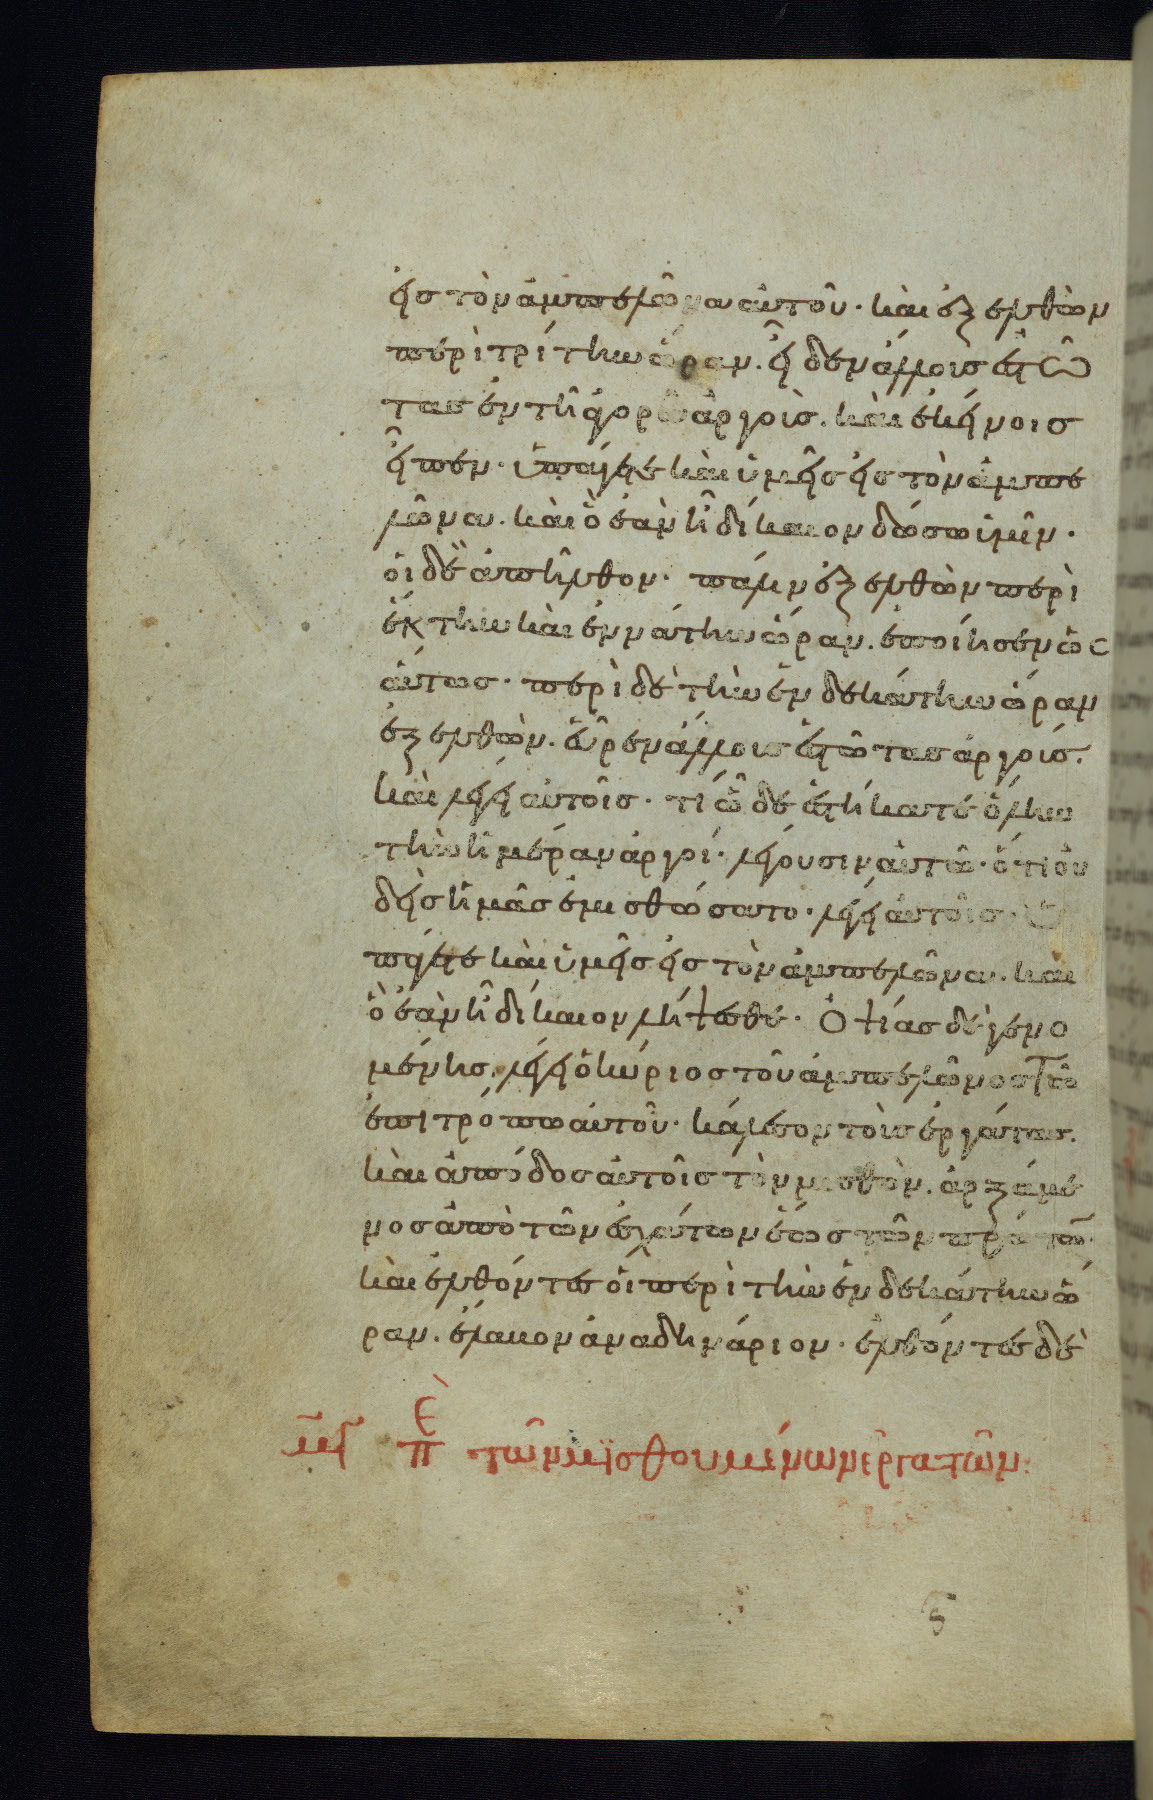 εἰς τὸν ἀμπελῶνα αὐτοῦ· καὶ ἐξελθὼν
περὶ τρίτην ὥραν. εἶδεν ἄλλους ἑστῶ
τας ἐν τῆ ἀγορᾶ ἀργούς. καὶ ἐκείνοις
εἶπεν· ὑπάγετε καὶ ὑμεῖς εἰς τὸν ἀμπε
λῶνα. καὶ ὃ ἐὰν ἦ δίκαιον δώσω ὑμῖν·
οἱ δὲ ἀπῆλθον· πάλιν ἐξελθὼν περὶ
ἕκτην καὶ ἐννάτην ὥραν. ἐποίησεν ὡς
αύτως· περὶ δὲ τὴν ἑνδεκάτην ὥραν
ἐξελθὼν. εὗρεν ἄλλους ἑστῶτας ἀργούς.
καὶ λέγει αὐτοῖς· τί ὧδε ἑστήκατε ὅλην
τὴν ἡμέραν ἀργοί· λέγουσιν αὐτῶ· ὅτι οὐ
δεὶς ἡμᾶς ἐμισθώσατο· λέγει αὐτοῖς· ὑ
πάγετε καὶ ὑμεῖς εἰς τὸν ἀμπελῶνα. καὶ
ὃ ἐὰν ἦ δίκαιον λήψεσθε· Ὀψίας δὲ γενο
μένης. λέγει ὁ κύριος τοῦ ἀμπελῶνος τῶ
ἐπιτρόπω αὐτοῦ· κάλεσον τοὺς ἐργάτας.
καὶ ἀπόδος αὐτοῖς τὸν μισθὸν. ἀρξάμε
νος ἀπὸ τῶν ἐσχάτων ἕως τῶν πρώτων·
καὶ ἐλθόντες οἱ περὶ τὴν ἑνδεκάτην ὥ
ραν. ἔλαβον ἀνὰ δηνάριον· ἐλθόντες δὲ
μϛ πε τῶν μισθουμένων ἐργατῶν: